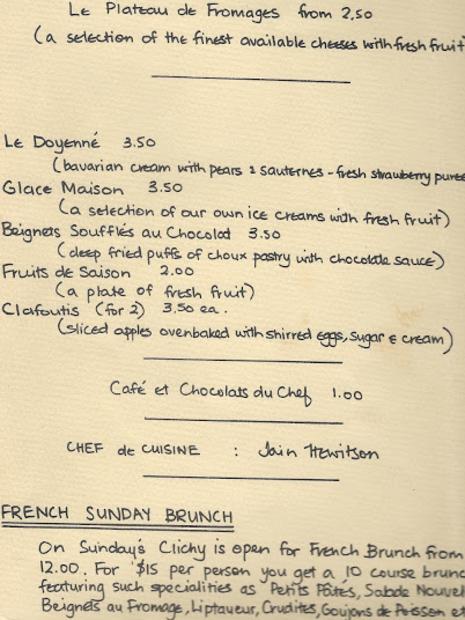 Le Plateau de Fromages from 2.50
(a selection of the finest available cheeses with fresh fruit
Le Doyenné 3.50
(bavarian cream with pears & sauternes - fresh strawberry puree
Glace Maison 3.50
(a selection of our own ice creams with fresh fruit)
Beignets Soufflés au Chocolat 3.50
(deep fried puffs of choux pastry with chocolate sauce)
Fruits de Saison 2.00
(a plate of fresh fruit)
Clafoutis (for 2) 3.50 ea.
(sliced apples ovenbaked with shirred eggs, sugar & cream)
Café et Chocolats du Chef 1.00
CHEF de CUISINE : Iain Hewitson
FRENCH SUNDAY BRUNCH
On Sunday's Clichy is open for French Brunch from
12.00. For $15 per person you get a 10 course brunc
featuring such specialities as Petits Pâtes, Salade Nouvel
Beignets au Fromage, Liptauer, Crudites, Goujons de Poisson et